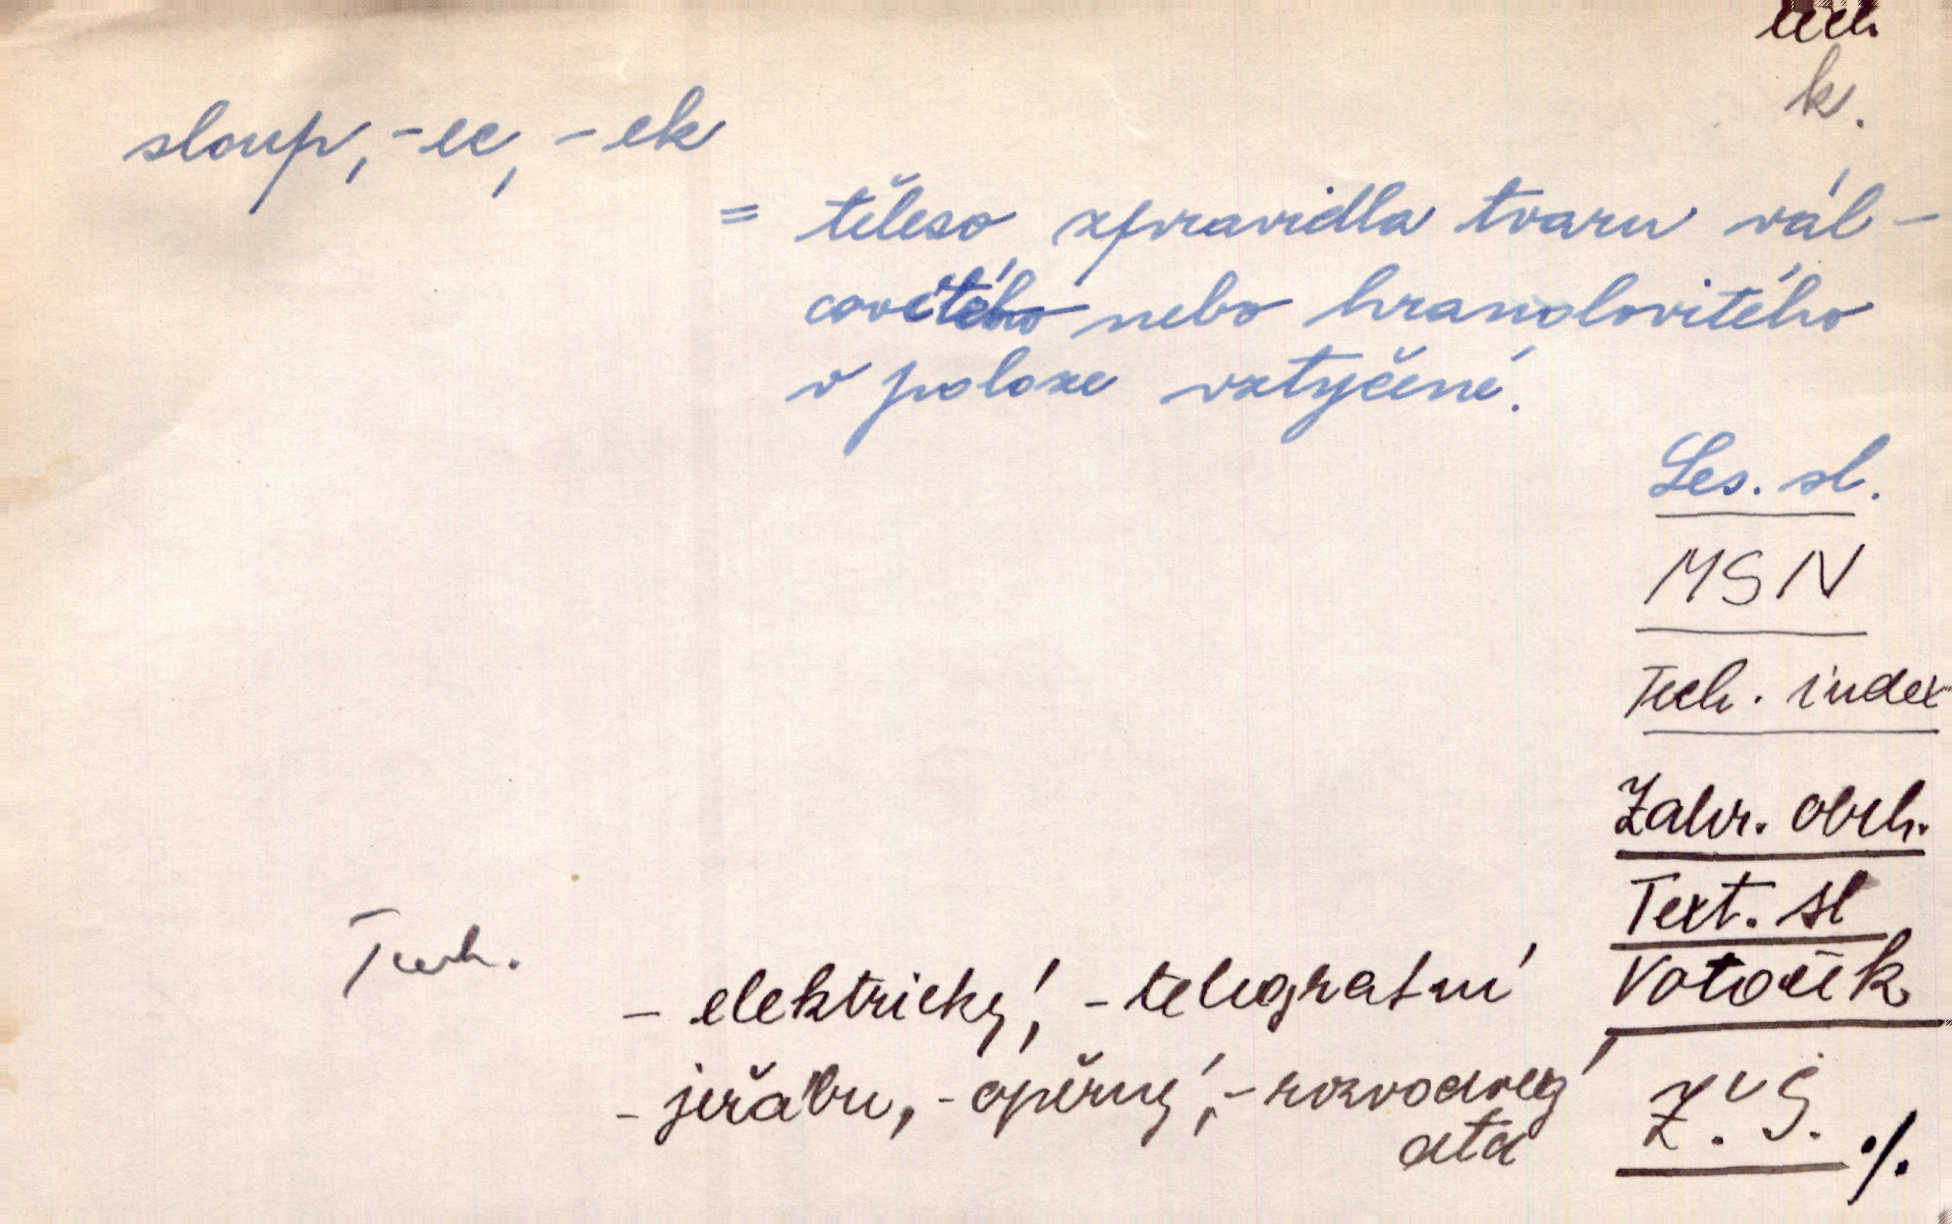 tech.
k.
sloup, -ec, -ek
= těleso zpravidla tvaru vál-
covitého nebo hranolovitého
v poloze vztyčené.
Les. sl.
MSN
Tech. index
Zahr. obch.
Text. sl
Votoček
Tech.
- elektrický, - telegrafní
- jeřábu, - opěrný, - rozvodný
atd
Z. Š. ./.